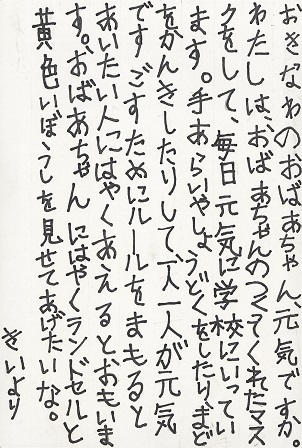 おきなわのおばあちゃん元気ですか。
わたしは、おばあちゃんのつくてくれたマス
クをして、毎日元気に学校にいってい
ます。手あらいやしょうどくをしたりまど
をかんきしたりして一人一人が元気
ですごすためにルールをまもると
あいたい人にはやくあえるとおもいま
す。おばあちゃんにはやくランドセルと
黄色いぼうしを見せてあげたいな。
きいより